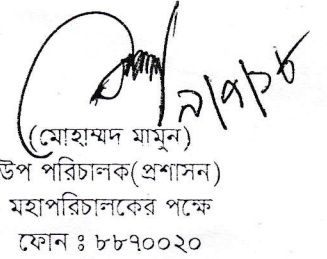 ৯/৭/১৮
(মোহাম্মদ মামুন)
উপ পরিচালক(প্রশাসন)
মহাপরিচালকের পক্ষে
ফোন ঃ ৮৮৭০০২০